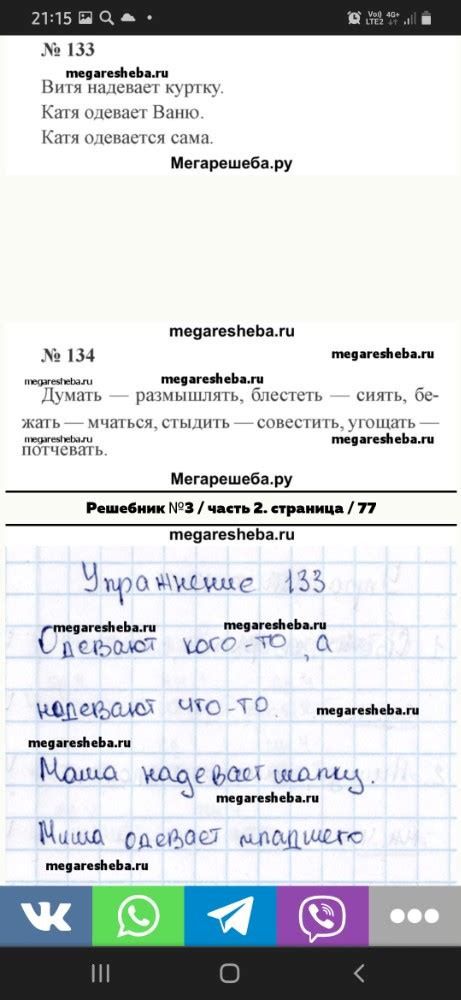 21:15
Vo)) 4G+
LTE2
№ 133
megaresheba.ru
Витя надевает куртку.
Катя одевает Ваню.
Катя одевается сама.
Мегарешеба.ру
megaresheba.ru
№ 134
megaresheba.ru
megaresheba.ru
megaresheba.ru
Думать — размышлять, блестеть — сиять, бе-
жать — мчаться, стыдить — совестить, угощать —
megaresheba.ru
megaresheba.ru
потчевать.
Мегарешеба.ру
Решебник №3 / часть 2. страница / 77
megaresheba.ru
Упражнение 133
megaresheba.ru
megaresheba.ru
Одевают кого-то, а
надевают что-то.
megaresheba.ru
megaresheba.ru
Маша надевает шапку.
megaresheba.ru
Миша одевает младшего
megaresheba.ru